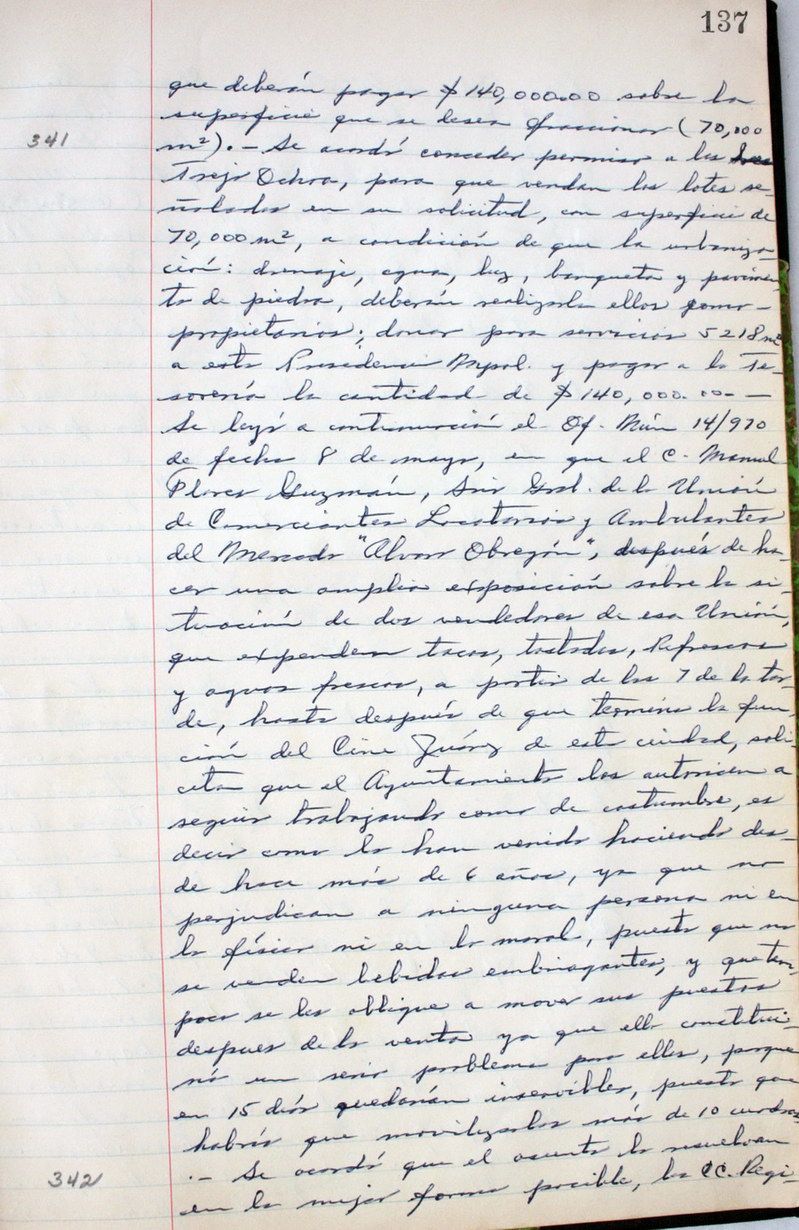 137
que deberán pagar $140,000.00 sobre la
superficie que se desea fraccionar (70,000
341
m²).- Se acordó conceder permiso a los
Trejo Ochoa, para que vendan los lotes se-
ñalados en su solicitud, con superficie de
70,000 m², a condición de que la urbaniza-
ción: drenaje, agua, luz, banqueta y pavimen-
to de piedra, deberán realizarla ellos como
propietarios; donar para servicios 5218 m²
a esta Presidencia Mpal. y pagar a la Te-
sorería la cantidad de $140,000.00 —
Se leyó a continuación el Of. Núm 14/970
de fecha 8 de mayo, en que el C. Manuel
Flores Guzmán, Srio Gral. de la Unión
de Comerciantes Locatarios y Ambulantes
del Mercado "Alvaro Obregón", después de ha-
cer una amplia exposición sobre la si-
tuación de dos vendedores de esa Unión,
que expenden tacos, tostadas, Refrescos
y aguas frescas, a partir de las 7 de la tar-
de, hasta después de que termina la fun-
ción del Cine Juárez de esta ciudad, soli-
cita que el Ayuntamiento los autoricen a
seguir trabajando como de costumbre, es
decir como lo han venido haciendo des-
de hace más de 6 años, ya que no
perjudican a ninguna persona ni en
lo físico ni en lo moral, puesto que no
se venden bebidas embriagantes, y que tam-
poco se les obligue a mover sus puestos
despues de la venta ya que ello constitui-
rá un serio problema para ellos, porque
en 15 días quedarían inservibles, puesto que
habría que movilizarlos más de 10 cuadras
342
.- Se acordó que el asunto lo resuelvan
en la mejor forma posible, los CC. Regi-